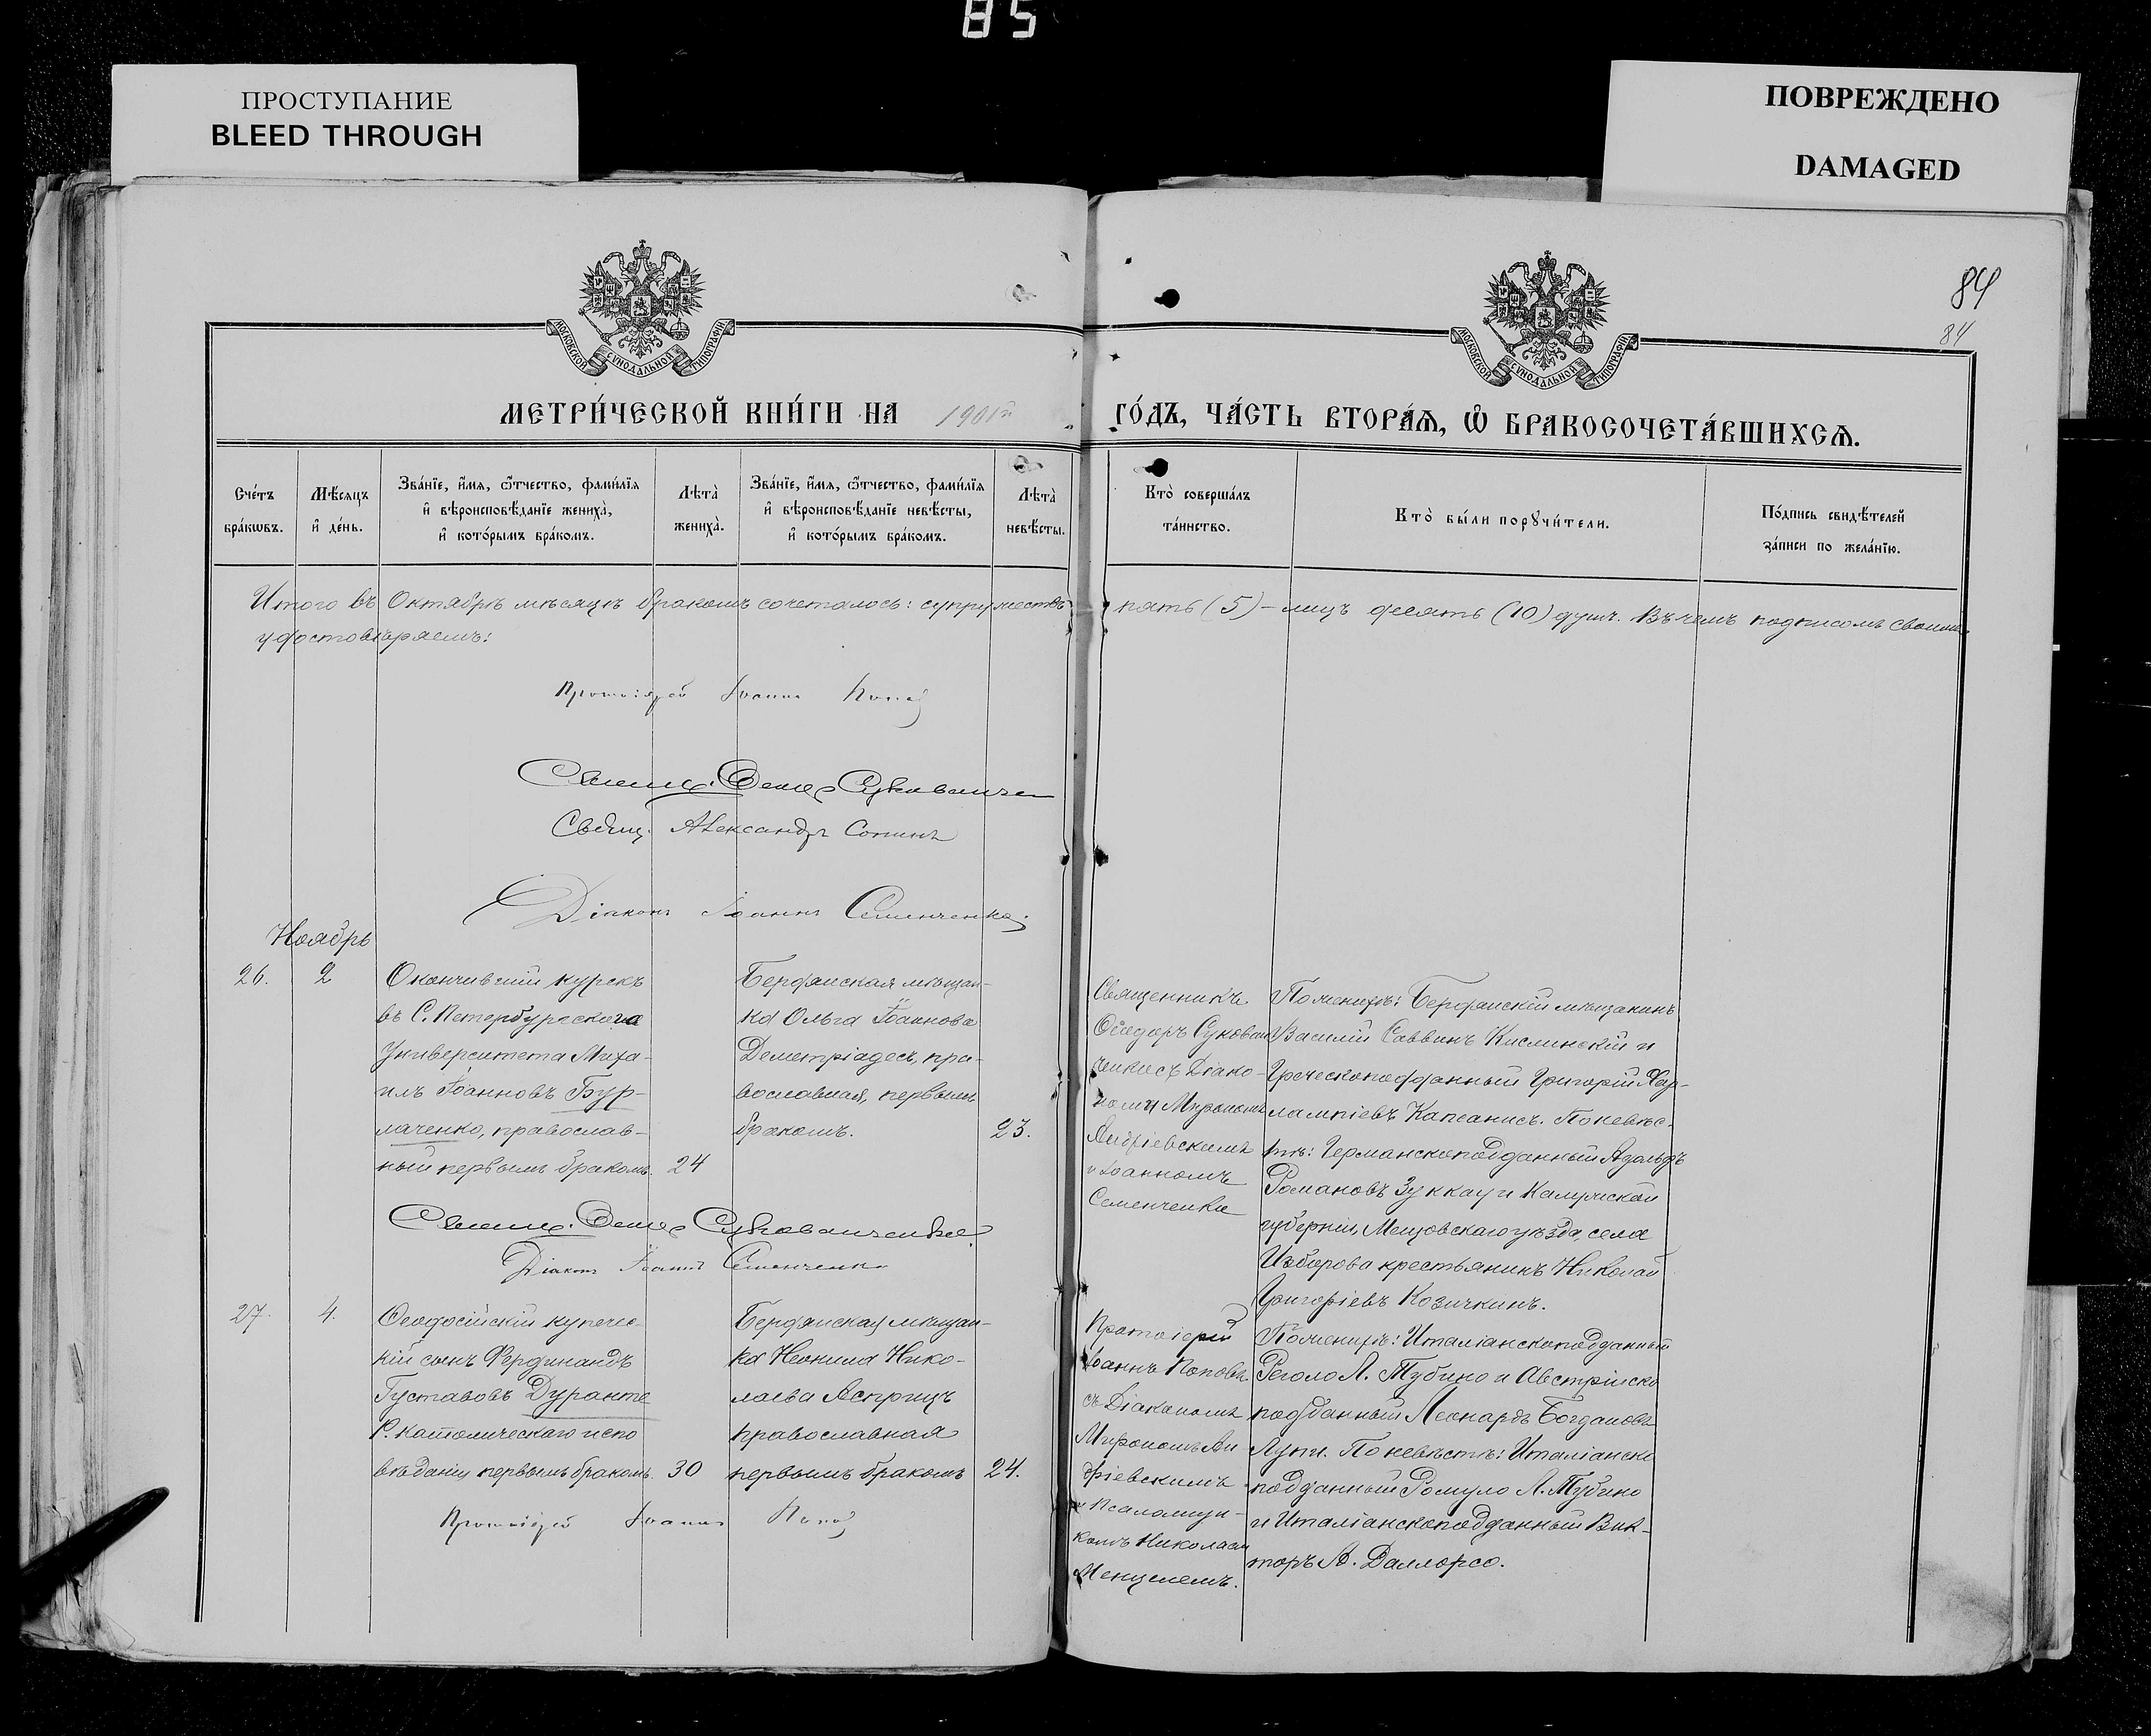 85
ПРОСТУПАНИЕ
BLEED THROUGH
ПОВРЕЖДЕНО
DAMAGED
84
84
МОСКОВСКОЙ СѴНОДАЛЬНОЙ ТИПОГРАФІИ
МОСКОВСКОЙ СѴНОДАЛЬНОЙ ТИПОГРАФІИ
МЕТРИ́ЧЕСКОЙ КНИ́ГИ НА 1901й ГО́ДЪ, ЧА́СТЬ ВТОРА́Ѧ, Ѽ БРАКОСОЧЕТА́ВШИХСѦ.
Сче́тъ
бра́кѡвъ.
Мѣ́сяцъ
и҆ де́нь.
Зва́нїе, и҆́мя, ѻ҆́тчество, фами́лїя
и҆ вѣроисповѣ́данїе жениха̀,
и҆ кото́рымъ бра́комъ.
Лѣта̀
жениха̀.
Зва́нїе, и҆́мя, ѻ҆́тчество, фами́лїя
и҆ вѣроисповѣ́данїе невѣ́сты,
и҆ кото́рымъ бра́комъ.
Лѣта̀
невѣ́сты.
Кто̀ соверша́лъ
та́инство.
Кто̀ бы́ли порꙋчи́тели.
По́дпись свидѣ́телей
за́писи по жела́нїю.
Итого въ Октябрѣ мѣсяцѣ бракомъ сочеталось: супружествъ пять (5) – лицъ десять (10) душъ. Въ чемъ подписомъ своимъ
удостовѣряемъ:
Протоіерей Іоаннъ Попов
Священ. Ѳеодор Сукованченко
Свящ. Александръ Сопинъ
Діаконъ Іоаннъ Семенченко.
Ноябрь
26.
2
Окончившій курсъ
въ С. Петербурскаго
Университета Миха-
илъ Іоанновъ Бур-
лаченко, православ-
ный первымъ бракомъ.
24
Бердянская мѣщан-
ка Ольга Іоаннова
Деметріадесъ, пра-
вославная, первымъ
бракомъ.
23.
Священникъ
Ѳеодоръ Сукован-
ченко съ Діако-
номъ Мирономъ
Андріевскимъ
и Іоанномъ
Семенченко
По женихѣ: Бердянскій мѣщанинъ
Василій Саввинъ Кислинскій и
Греческоподданный Григорій Хар-
лампіевъ Капсанисъ. По невѣс-
тѣ: Германскоподданный Адольфъ
Романовъ Зуккау и Калужской
губерніи, Мещовскаго уѣзда, села
Изборова крестьянинъ Николай
Григоріевъ Козичкинъ.
Священ. Ѳеодор Сукованченко.
Діаконъ Іоаннъ Семенченко
27.
4.
Ѳеодосійскій купечес-
кій сынъ Фердинандъ
Густавовъ Дуранте
Р. Католическаго испо
вѣданія первымъ бракомъ.
30
Бердянская мѣщан-
ка Неонила Нико-
лаева Асприцъ
православная
первымъ бракомъ
24.
Протоіерей
Іоаннъ Поповъ
съ Діакономъ
Мирономъ Ан
дріевскимъ
и Псаломщи-
комъ Николаем
Менцелемъ.
По женихѣ: Италіанскоподданный
Реголо Л. Тубино и Австрійско
подданный Леонардъ Богдановъ
Лупи. По невѣстѣ: Италіанско
подданный Ромуло Л. Тубино
и Италіанскоподданный Вик-
торъ А. Даллорсо.
Протоіерей Іоаннъ Попов